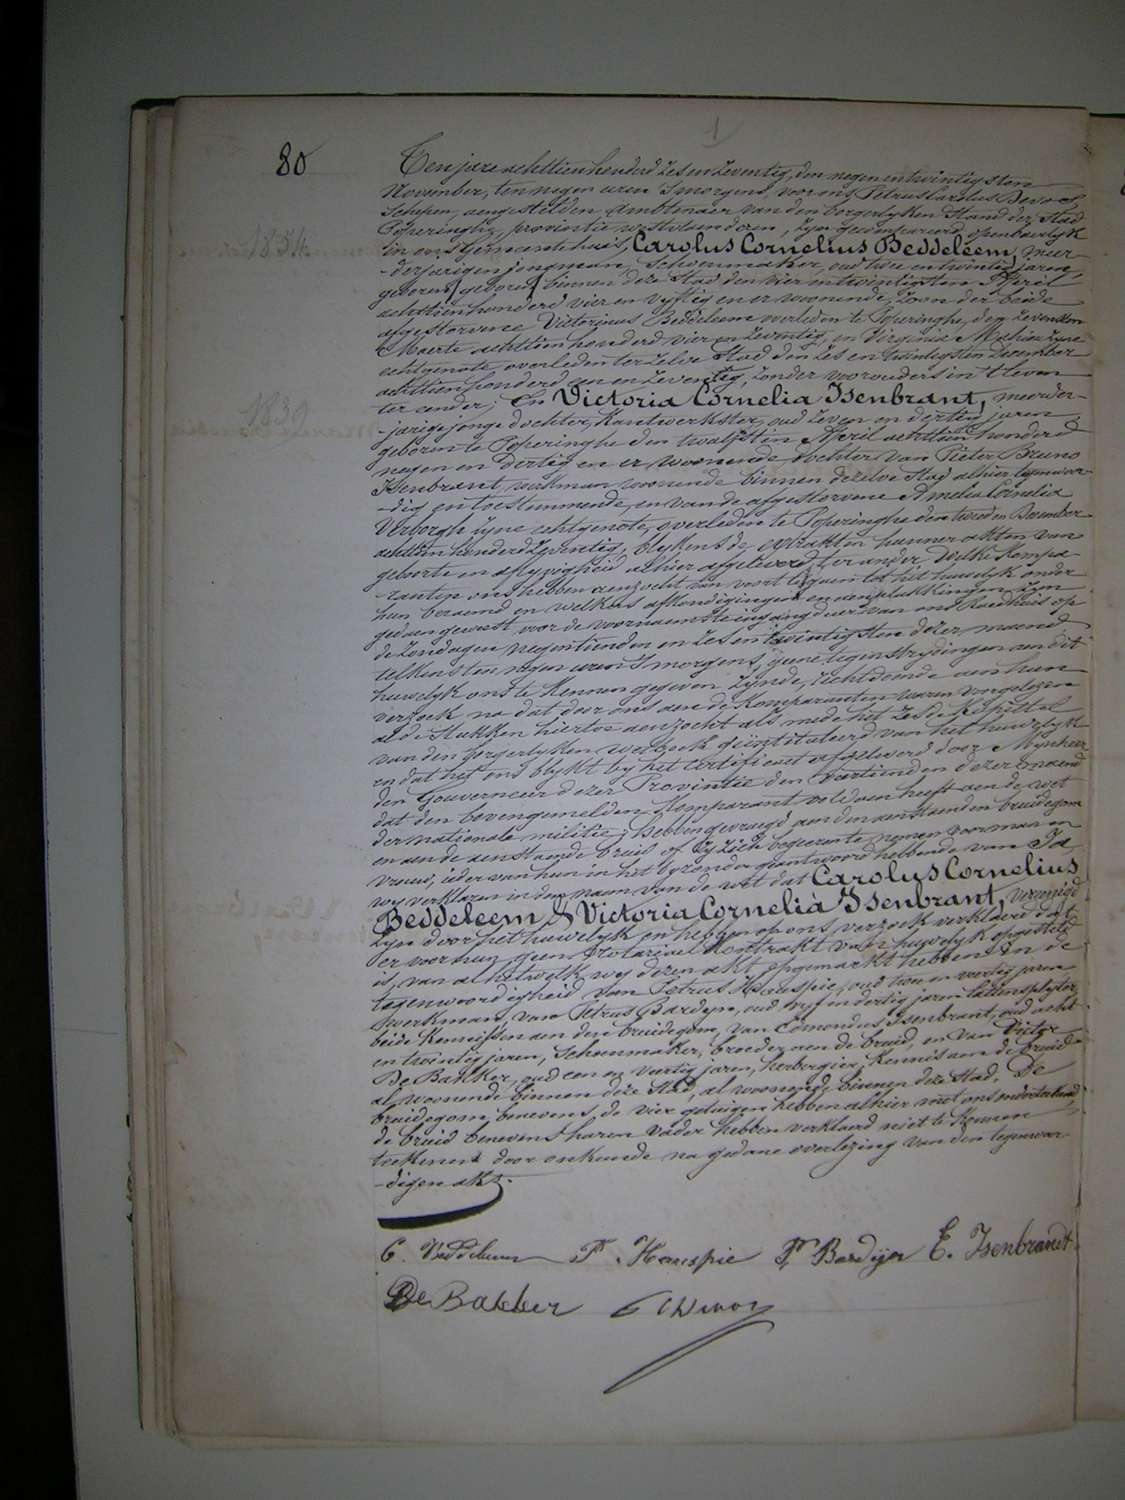 80
Ten jare achttien honderd zes en zeventig, den negen en twintigsten
November, ten negen uren 's morgens, voor ons Petrus Carolus Devos,
Schepen, aengestelden Ambtenaer van den borgerlyken Stand der Stad
Poperinghe, provintie westvlaenderen, zyn gecompareerd openbaerlyk
in ons Gemeentehuis, Carolus Cornelius Beddeleem, meer-
-derjarigen jongman, Schoenmaker, oud twee en twintig jaren,
geboren binnen deze Stad den vier en twintigsten April
achttien honderd vier en vyftig en er woonende, zoon der beide
afgestorvene Victorinus Beddeleem overleden te Poperinghe, den zevensten
Maerte achttien honderd vier en zeventig, en Virginia Mahieu zyne
echtgenote overleden ter zelve Stad den zes en twintigsten December
achttien honderd een en zeventig, zonder voorouders in 't leven
ter eender; En Victoria Cornelia Isenbrant, meerder-
-jarige jonge dochter, Kantwerkster, oud zeven en dertig jaren,
geboren te Poperinghe den twalfsten April achttien honderd
negen en dertig en er woonende dochter van Pieter Bruno
Isenbrant, werkman woonende binnen dezelve Stad alhier tegenwoor-
-dig en toestemmende, en van de afgestorvene Amelia Cornelia
Verborgh zyne echtgenote, overleden te Poperinghe den tweeden December
achttien honderd zeventig, blykens de extrakten hunner akten van
geboorte en aflyvigheid alhier afgeleverd, ter ander. Welke Kompa-
-ranten ons hebben aenzocht van voort te gaen tot het huwelyk onder
hun beraemd en welkers afkondigingen en aenplakkingen zyn
gedaen geweest voor de voornaemste ingangdeur van ons Raedhuis op
de zondagen negentienden en zes en twintigsten dezer maend
telkens ten negen uren 's morgens, geene tegenstrydingen aen dit
huwelyk ons te kennen gegeven zynde, recht doende aen hun
verzoek na dat door ons aen de Komparanten waren voorgelezen
al de Stukken hiertoe aenzocht als mede het zesde Kapittel
van den borgerlyken wetboek geïntituleerd van het huwelyk
en dat het ons blykt by het certificaet afgeleverd door Mynheer
den Gouverneur dezer Provintie den veertienden dezer maend
dat den bovengemelden Komparant voldaen heeft aen de wet
der nationale militie; Hebben gevraegd aen den aenstaenden bruidegom
en aen de aenstaende bruid of zy zich begeerente nemen voor man en
vrouw, ieder van hun in het byzonder geantwoord hebbende van Ja
wy verklaren in den naem van de wet dat Carolus Cornelius
Beddeleem & Victoria Cornelia Isenbrant, vereenigd
zyn door het huwelyk en hebben op ons verzoek verklaerd dat
er voor hun geen Notariael Kontrakt van huwelyk opgesteld
is, van al hetwelk wy dezen akt opgemaekt hebben in de
tegenwoordigheid van Petrus Hauspie, oud twee en veertig jaren
werkman, van Petrus Bardyn, oud vyf en dertig jaren lattensplyter,
beide Kennissen aen den bruidegom, van Edmondus Isenbrant, oud acht
en twintig jaren, Schoenmaker, broeder aen de bruid, en van Victor
De Bakker, oud een en veertig jaren, herbergier, Kennis aen de bruid
al woonende binnen deze Stad. De
bruidegom benevens de vier getuigen hebben alhier met ons onderteekend
de bruid benevens haren vader hebben verklaerd niet te kunnen
teekenen door onkunde na gedane overlezing van den tegenwoor-
-digen akt.
C. Beddeleem P. Hauspie P. Bardijn E. Isenbrandt
De Bakker C Devos